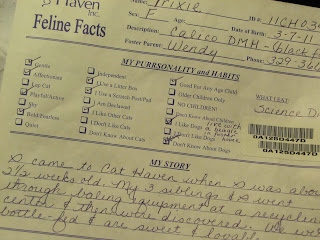 Haven Inc. Name TRIXIE ID# 11CH03
Feline Facts Sex F Age Date 3-7-11
Description Calico DMH - black
Foster Parent Wendy Phone 329-36
MY PURRSONALITY and HABITS
Gentle Independent Good For Any Age Child WHAT I EAT:
Affectionate Use a Litter Box Older Children Only Science Di
Lap Cat Use a Scratch Post/Pad NO CHILDREN!
Playful/Active I am Declawed Don't Know About Children
Shy I Like Other Cats I Like Dogs
Bold/Fearless I Don't Like Cats I Don't Like Dogs 0A12SD447D
Quiet Don't Know About Cats Don't Know About Dogs 0A12SD447D
MY STORY
I came to Cat Haven when I was about
2 1/2 weeks old. My 3 siblings & I went
through baling equipment at a recycling
center & then were discovered. We were
bottle-fed & are sweet & lovable